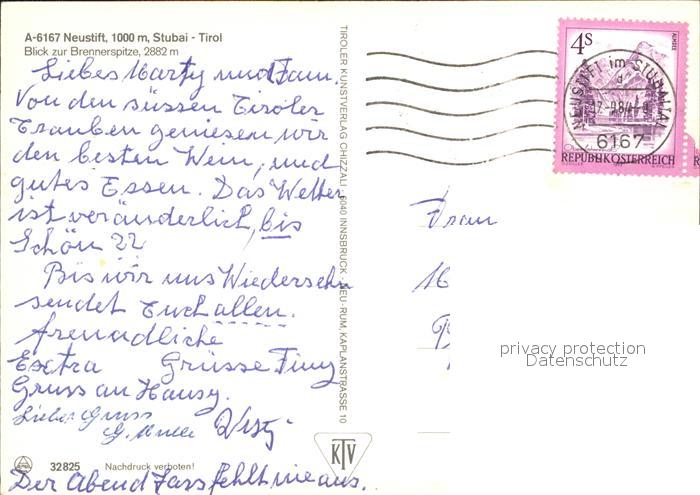 A-6167 Neustift, 1000 m, Stubai - Tirol
Blick zur Brennerspitze, 2882 m
Liebes Marty und Fam.
Von den süssen Tiroler
Trauben geniesen wir
den besten Wein, und
gutes Essen. Das Wetter
ist veränderlich, bis
Schön ??
Bis wir uns Wiedersehn
sendet Euch allen.
freundliche
Exctra Grüsse Finy
Gruss an Hansy.
Liebe Gruss
Der Abend Jass fehlt nie aus.
32825 Nachdruck verboten!
TIROLER KUNSTVERLAG CHIZZALI · 6040 INNSBRUCK - NEU-RUM, KAPLANSTRASSE 10
KTV
4 S
ALMSEE
NEUSTIFT im STUBAITAL
6167
REPUBLIK ÖSTERREICH
Frau
16
privacy protection
Datenschutz